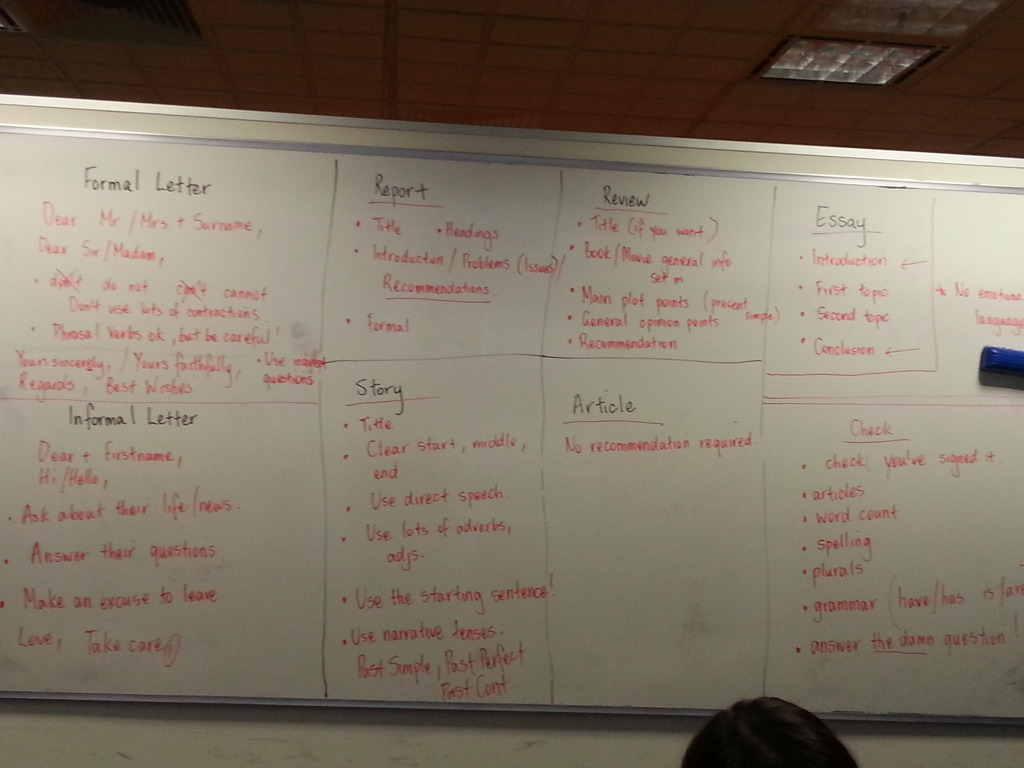 Formal Letter
Dear Mr./Mrs + Surname,
Dear Sir/Madam,
• don't do not can't cannot
Don't use lots of contractions.
• Phrasal Verbs ok, but be careful!
Yours sincerely, / Yours faithfully,
Regards, Best Wishes
• Use
questions
Informal Letter
Dear + Firstname,
Hi/Hello,
• Ask about their life/news.
• Answer their questions.
• Make an excuse to leave
Love, Take care
Report
• Title • Headings
• Introduction / Problems (Issues)/
Recommendations.
• Formal
Story
• Title
• Clear start, middle,
end
• Use direct speech.
• Use lots of adverbs,
adjs.
• Use the starting sentence!
• Use narrative tenses:
Past Simple, Past Perfect
Past Cont
Review
• Title (if you want)
• Book/Movie general info
set in
• Main plot points (present
simple)
• General opinion points
• Recommendation
Article
No recommendation required.
Essay
• Introduction ←
• First topic
• Second topic
• Conclusion ←
* No emotional
language
Check
• check you've signed it.
• articles
• word count
• spelling
• plurals
• grammar (have/has is/are
• answer the damn question!